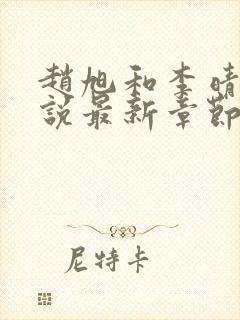 趙旭和李晴
說最新章節
尼特卡